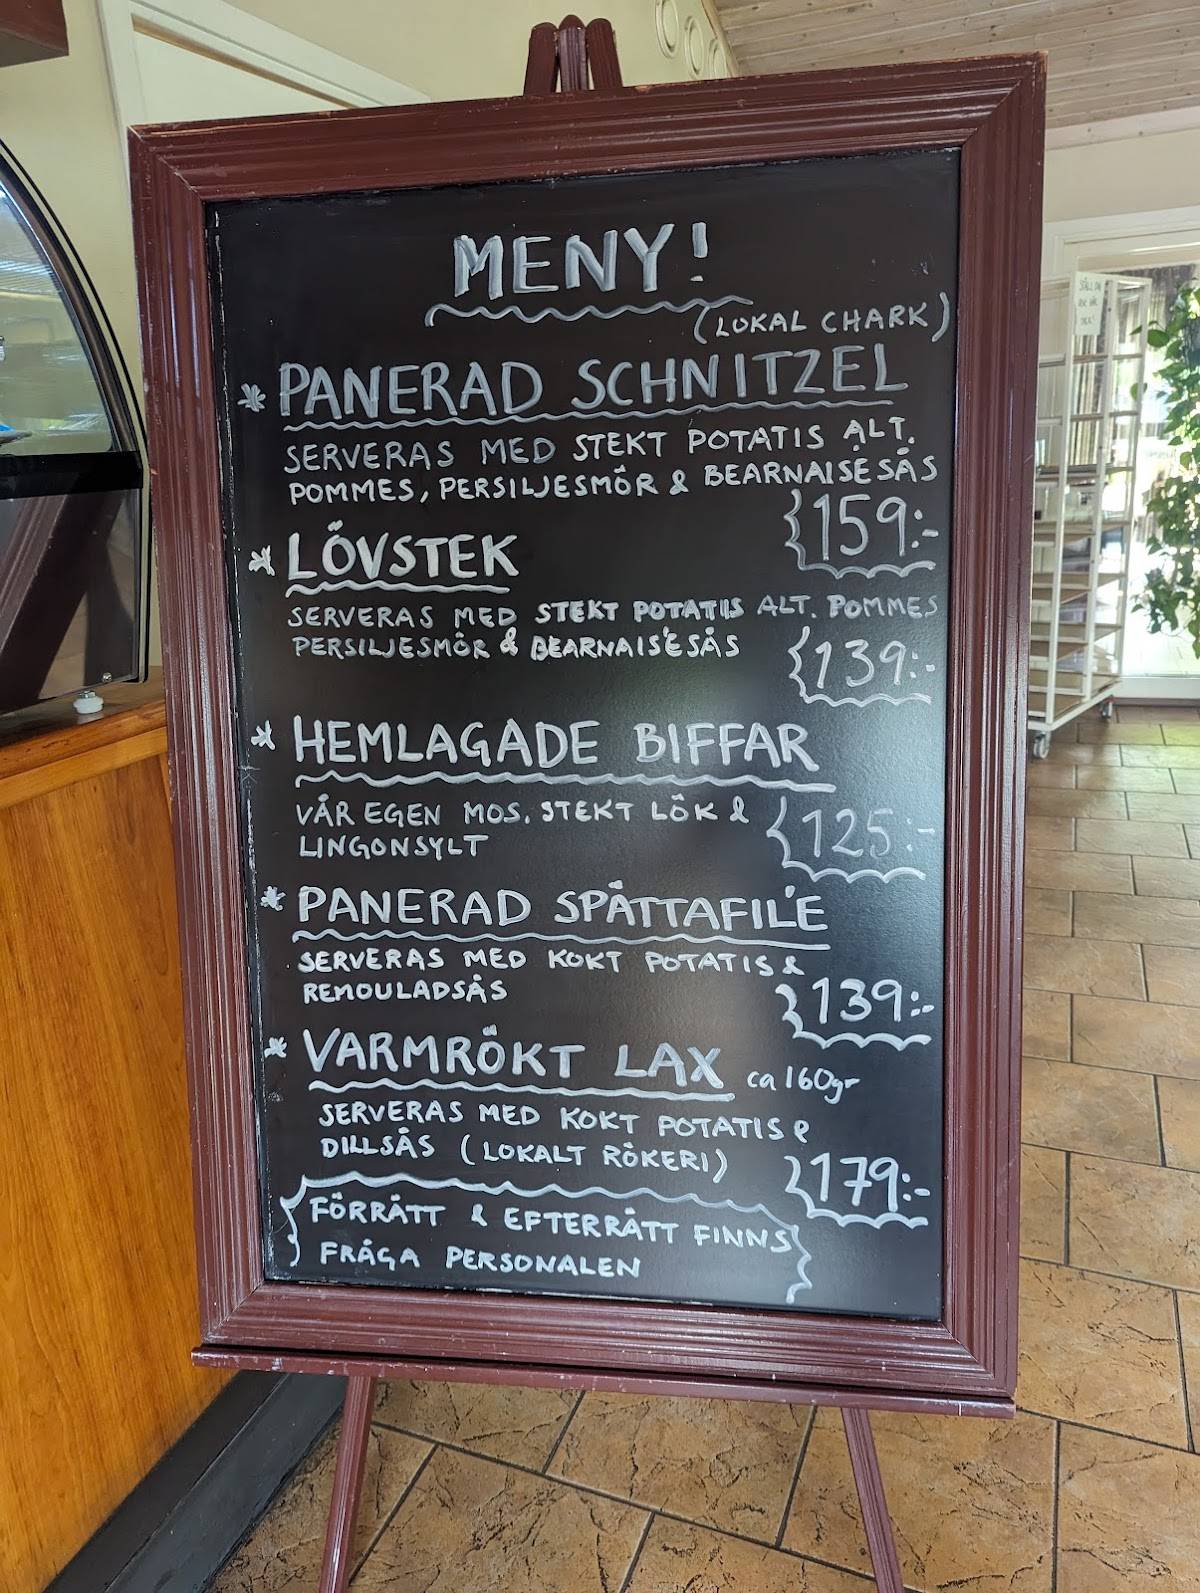 MENY!
(LOKAL CHARK)
* PANERAD SCHNITZEL
SERVERAS MED STEKT POTATIS ALT.
POMMES, PERSILJESMÖR & BEARNAISESÅS
159:-
* LÖVSTEK
SERVERAS MED STEKT POTATIS ALT. POMMES
PERSILJESMÖR & BEARNAISESÅS
139:-
* HEMLAGADE BIFFAR
VÅR EGEN MOS. STEKT LÖK &
LINGONSYLT
125:-
* PANERAD SPÄTTAFILÉ
SERVERAS MED KOKT POTATIS &
REMOULADSÅS
139:-
* VARMRÖKT LAX ca 160gr
SERVERAS MED KOKT POTATIS &
DILLSÅS (LOKALT RÖKERI)
179:-
FÖRRÄTT & EFTERRÄTT FINNS
FRÅGA PERSONALEN